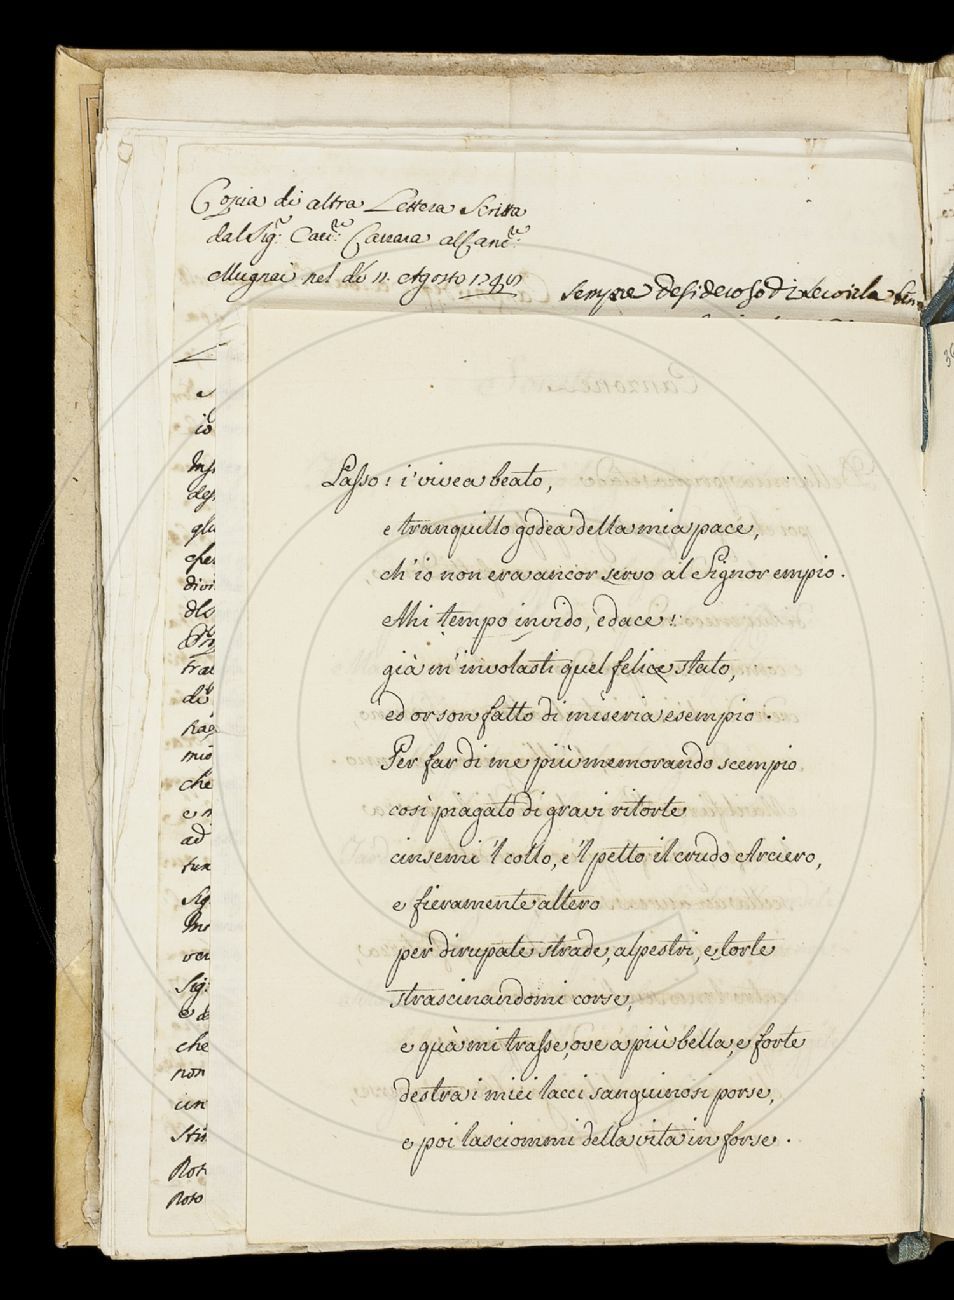 Copia di altra Lettera Scritta
dal Sig.r Cav.re Carrara al Canc.re
Mugnai nel dì 11. Agosto
sempre desideroso di
Lasso! i' vivea beato,
e tranquillo godea della mia pace,
ch' io non era ancor servo al Signor empio.
Ahi tempo invido, edace!
già m' involasti quel felice stato,
ed or son fatto di miseria esempio.
Per far di me più memorando scempio
così piagato di gravi ritorte
cinsemi 'l collo, e 'l petto il crudo Arciero,
e fieramente altero
per dirupate strade, alpestri, e torte
strascinandomi corse,
e quà mi trasse, ove a più bella, e forte
destra i miei lacci sanguinosi porse,
e poi lasciommi della vita in forse.
io
che
ad
Sig.
che
non